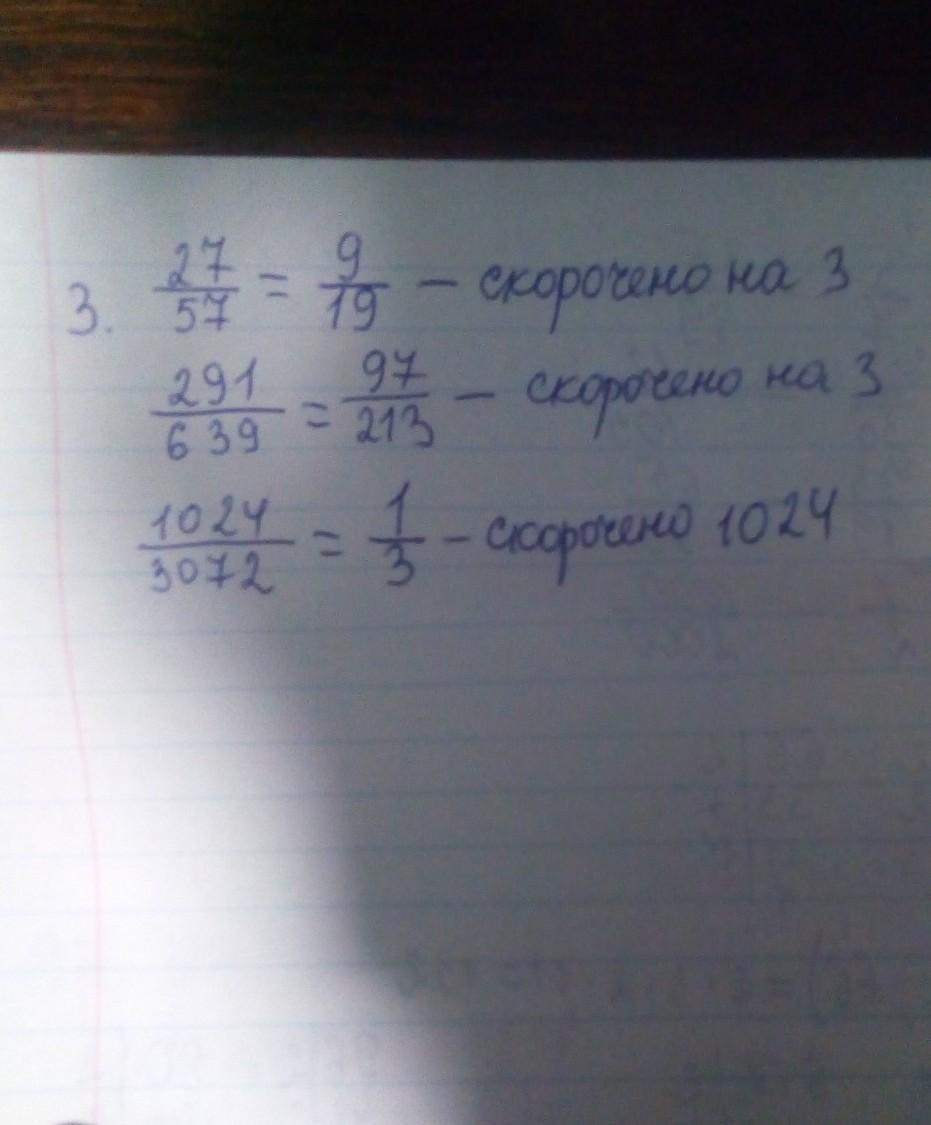 3. 27/57 = 9/19 – скорочено на 3
291/639 = 97/213 – скорочено на 3
1024/3072 = 1/3 – скорочено 1024